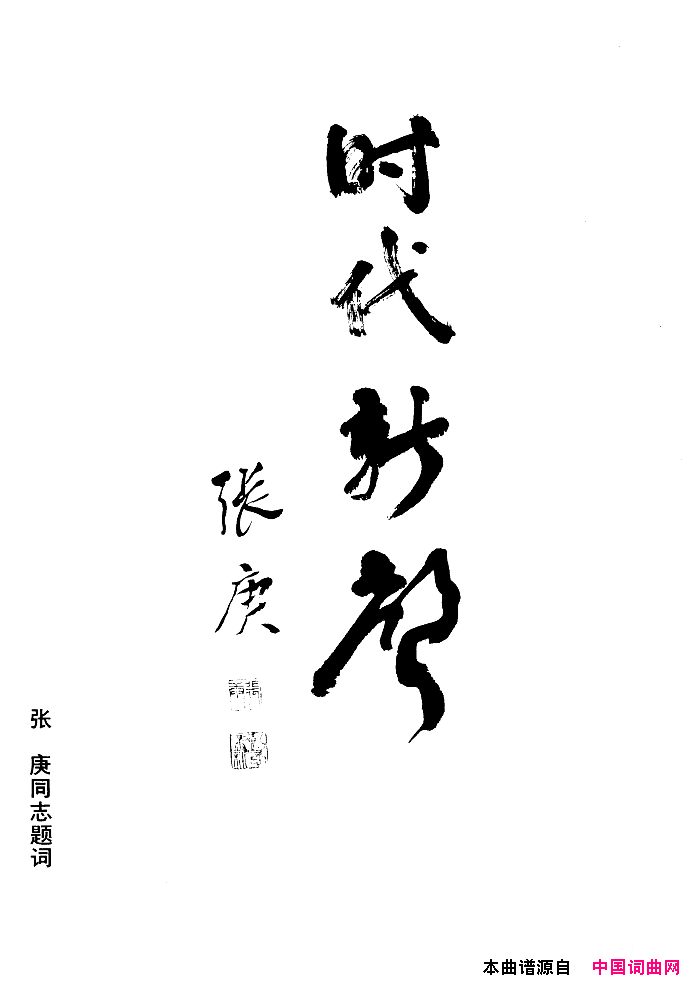 时代新声
张庚
张 庚同志题词
本曲谱源自 中国词曲网